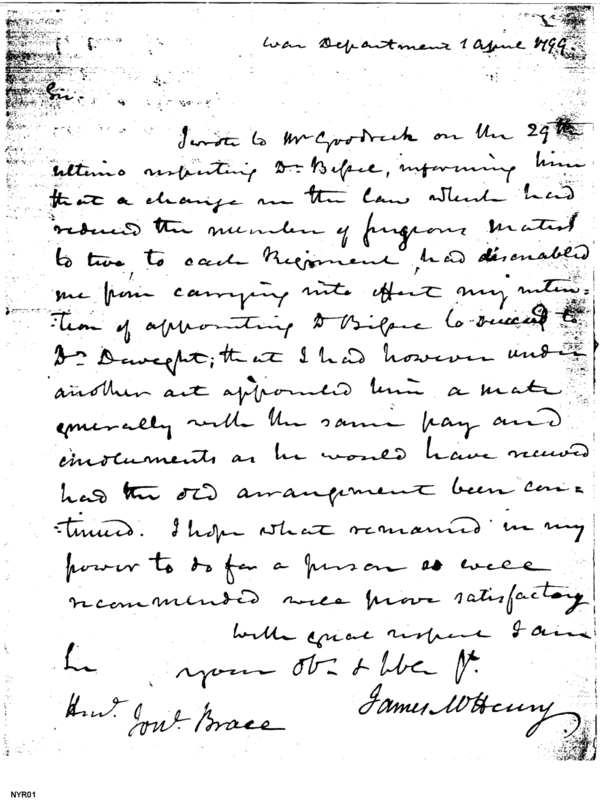 War Department 1 April 1799.
Sir.
I wrote to Mr Goodrich on the 29th
ultimo respecting Dr. Bissee, informing him
that a change in the law which had
reduced the number of surgeons mates
to two, to each Regiment, had disenabled
me from carrying into effect my inten-
-tion of appointing D Bissee to succeed to
Dr. Dwight; that I had however under
another act appointed him a mate
generally with the same pay and
emoluments as he would have received
had the old arrangement been con-
-tinued. I hope what remained in my
power to do for a person so well
recommended will prove satisfactory
With great respect I am
Sir your Obt & hble St.
James McHenry
Honl. Jona. Brace
NYR01